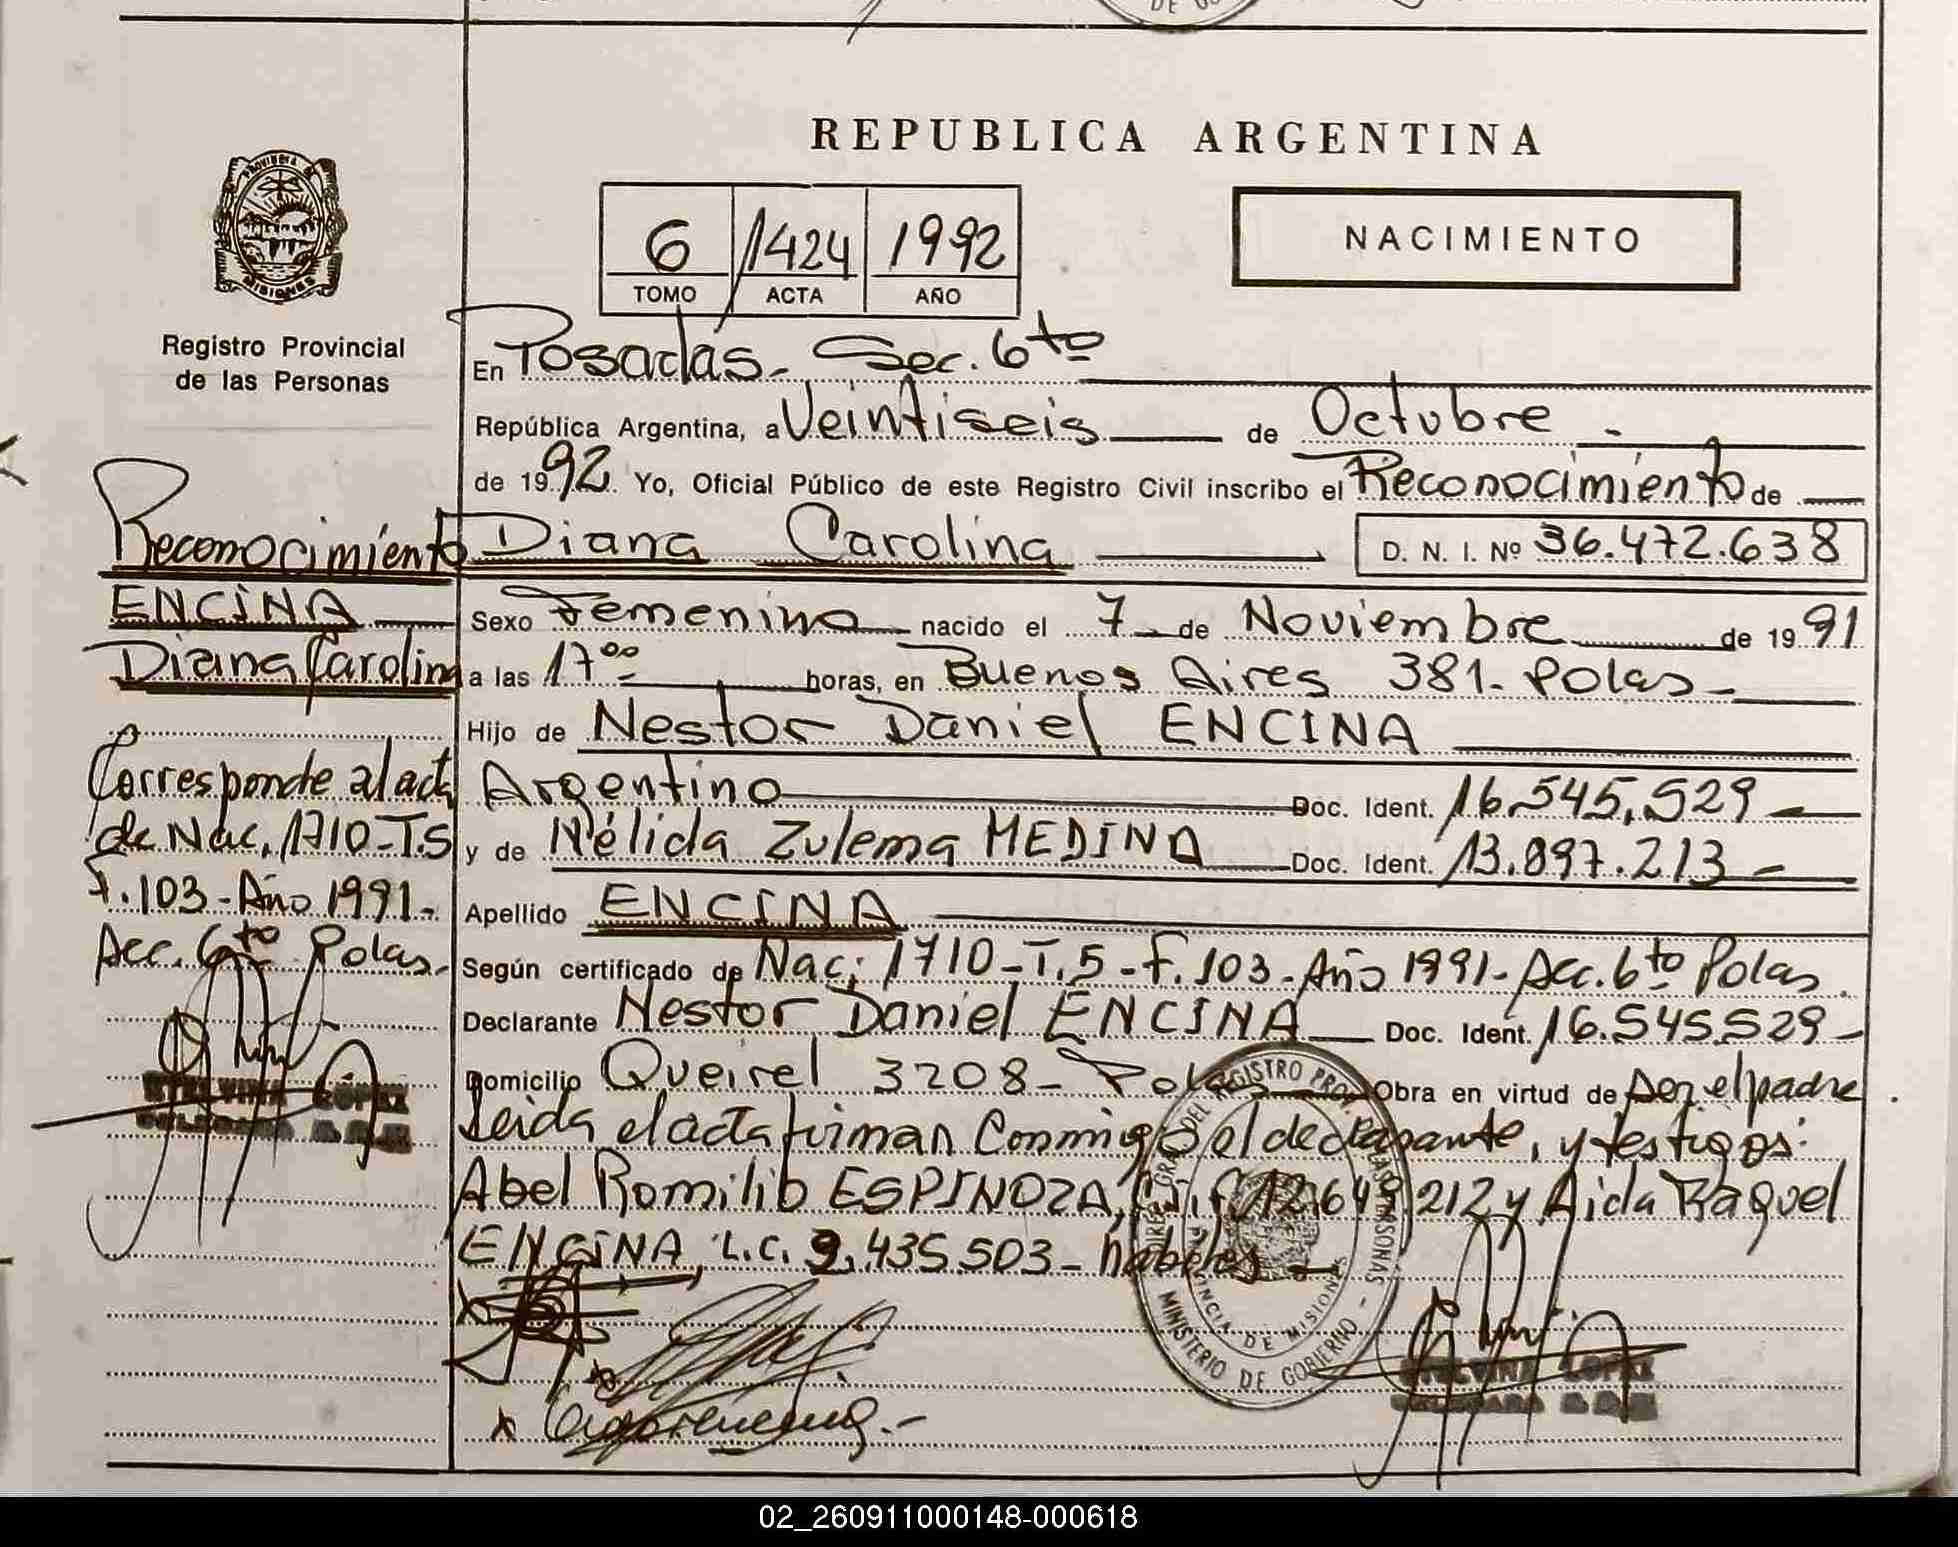 REPUBLICA ARGENTINA
PROVINCIA
MISIONES
Registro Provincial
de las Personas
6 1424 1992
TOMO ACTA AÑO
NACIMIENTO
En Posadas - Sec. 6to
República Argentina, a Veintiseis de Octubre -
de 1992. Yo, Oficial Público de este Registro Civil inscribo el Reconocimiento de
Diana Carolina D. N. I. Nº 36.472.638
Sexo Femenino nacido el 7 de Noviembre de 1991
a las 17.00 horas, en Buenos Aires 381 - Pdas -
Hijo de Nestor Daniel ENCINA
Argentino Doc. Ident. 16.545.529 -
y de Nélida Zulema MEDINA Doc. Ident. 13.897.213 -
Apellido ENCINA
Según certificado de Nac. 1710 - T.5 - F. 103 - Año 1991 - Sec. 6to Pdas.
Declarante Nestor Daniel ENCINA Doc. Ident. 16.545.529 -
Domicilio Queirel 3208 - Pdas Obra en virtud de ser el padre.
Leida el acta firman Conmigo el declarante, y testigos:
Abel Romilio ESPINOZA, 12.649.212 y Aida Raquel
ENCINA, L.C. 2.435.503 - habiles -
Reconocimiento
ENCINA
Diana Carolina
Corresponde al acta
de Nac. 1710 - T.5
F. 103 - Año 1991 -
Sec. 6to Pdas. -
ETELVINA LOPEZ
DELEGADA
REGISTRO PROV. DE LAS PERSONAS
MINISTERIO DE GOBIERNO
PROVINCIA DE MISIONES
ETELVINA LOPEZ
DELEGADA
02_260911000148-000618